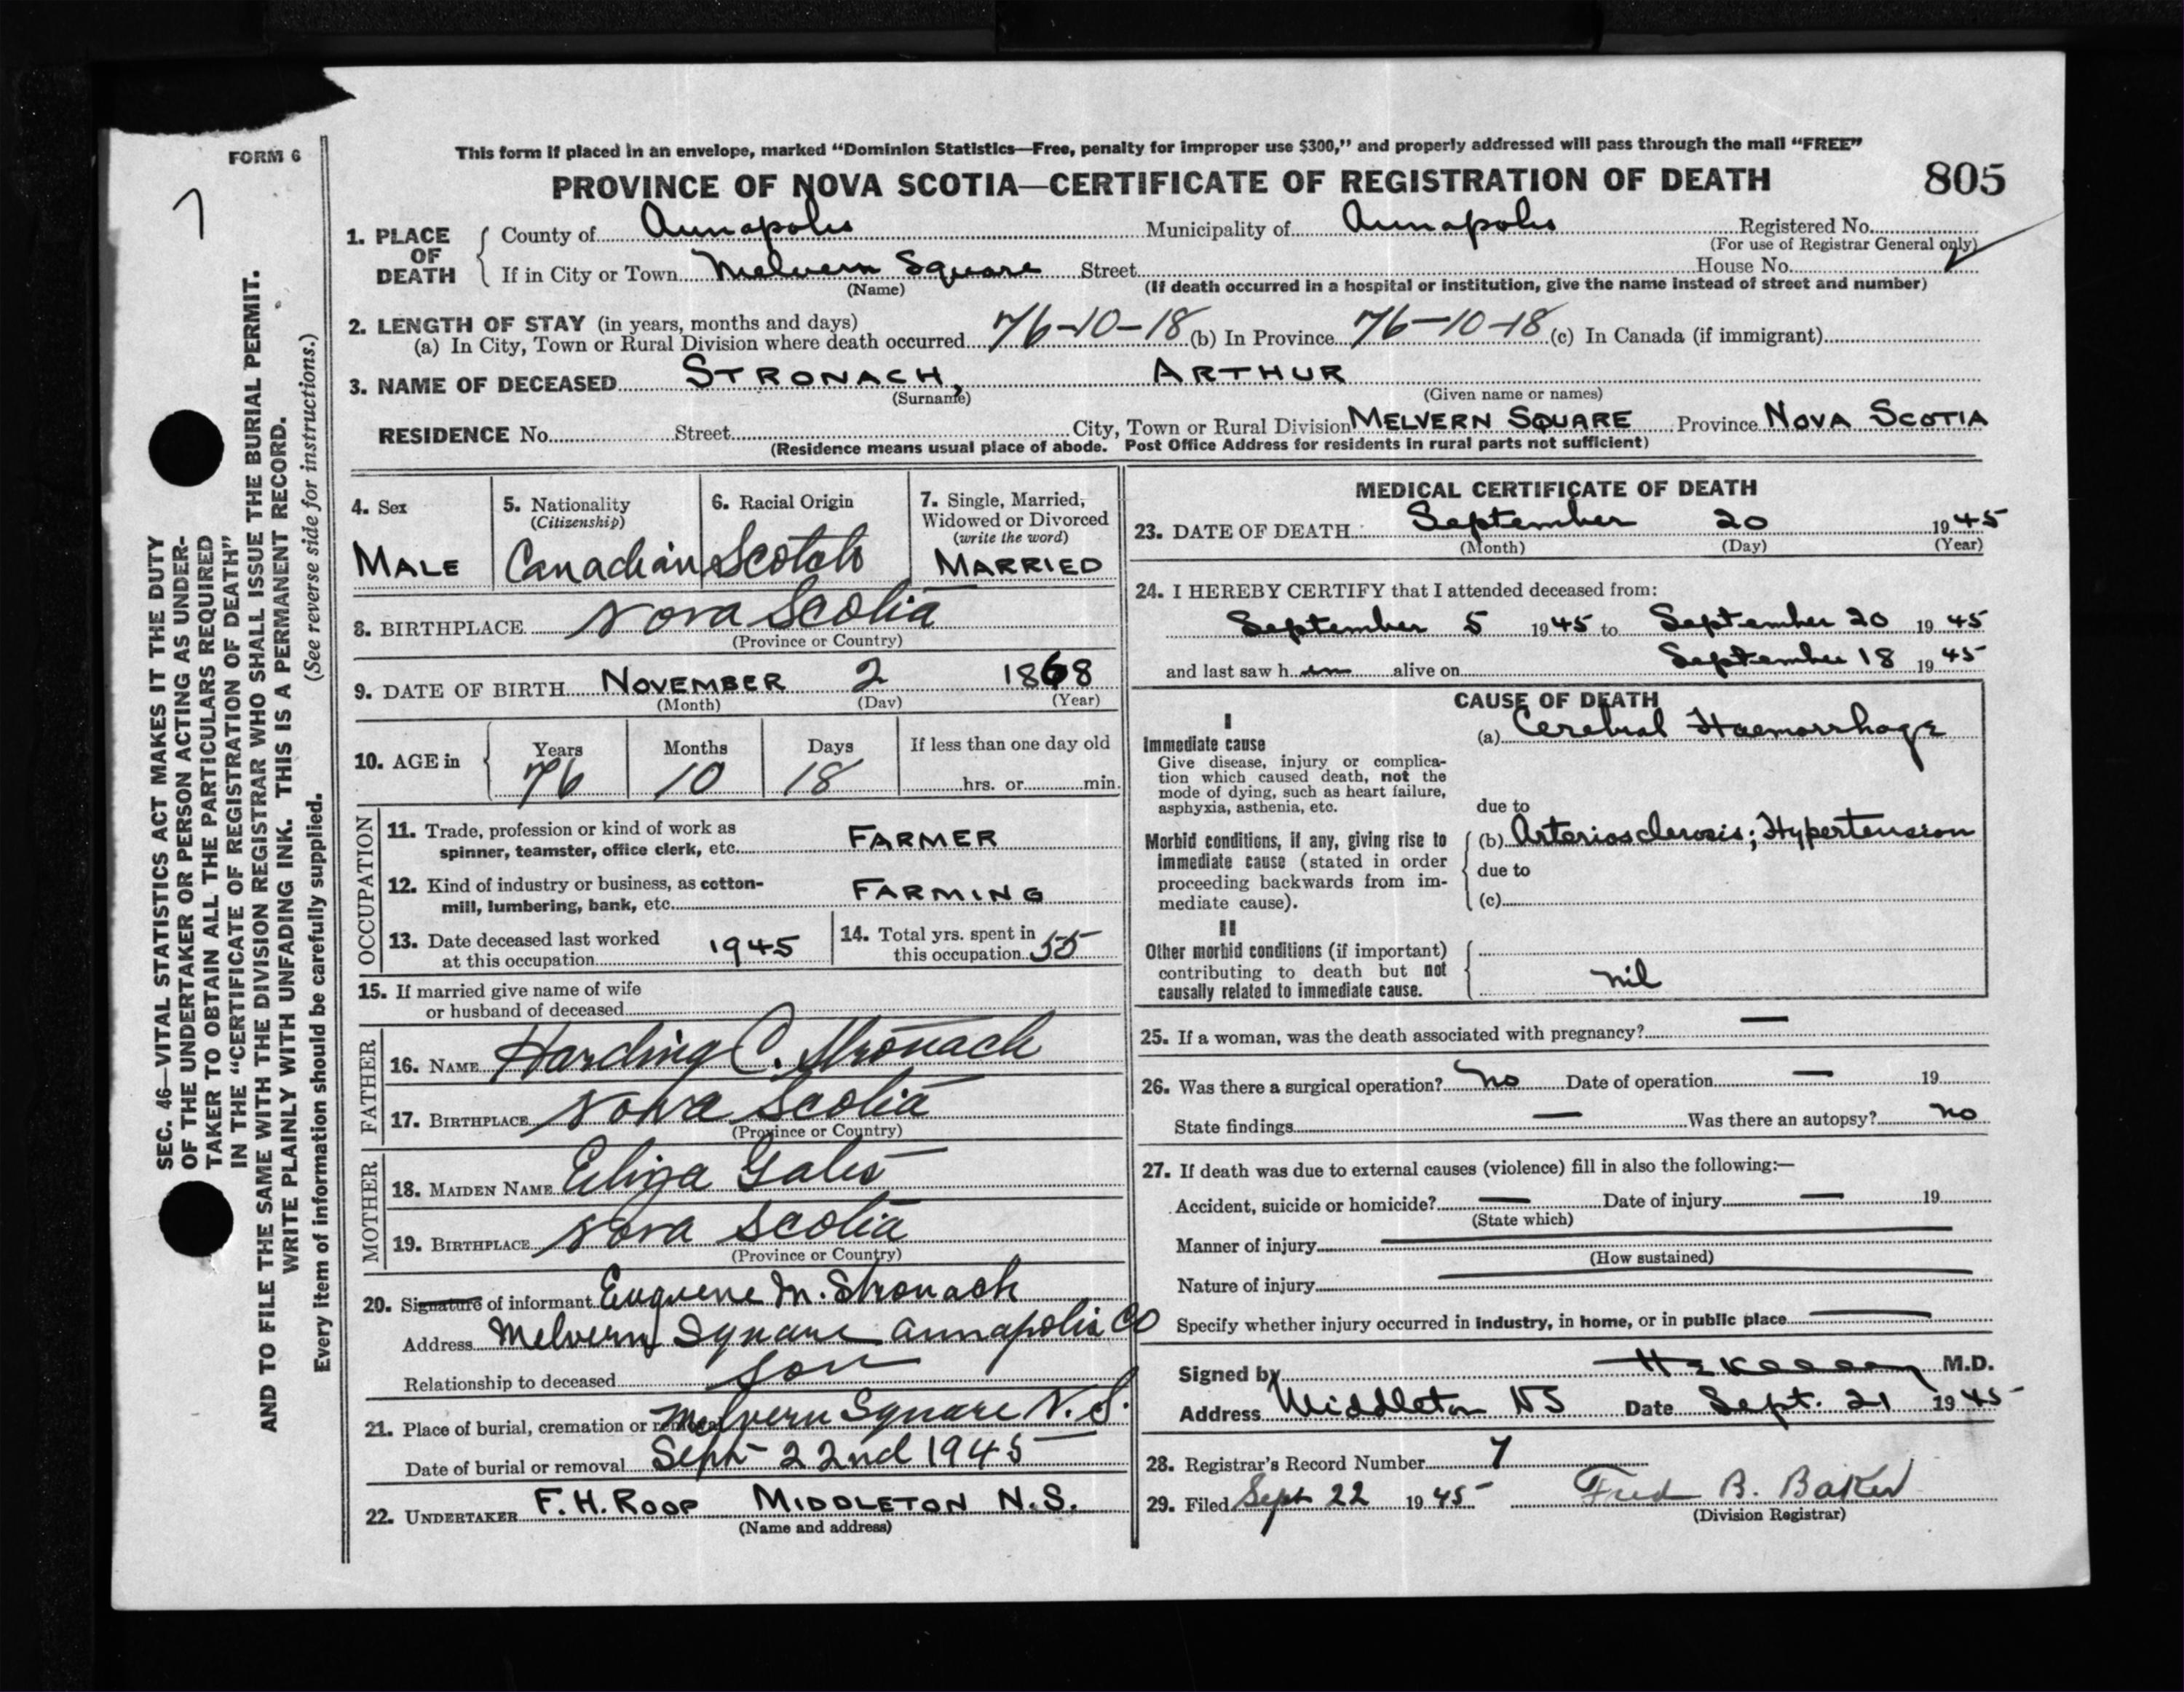 FORM 6
7
This form if placed in an envelope, marked “Dominion Statistics—Free, penalty for improper use $300,” and properly addressed will pass through the mail “FREE”
PROVINCE OF NOVA SCOTIA—CERTIFICATE OF REGISTRATION OF DEATH
805
SEC. 46—VITAL STATISTICS ACT MAKES IT THE DUTY
OF THE UNDERTAKER OR PERSON ACTING AS UNDER-
TAKER TO OBTAIN ALL THE PARTICULARS REQUIRED
IN THE “CERTIFICATE OF REGISTRATION OF DEATH”
AND TO FILE THE SAME WITH THE DIVISION REGISTRAR WHO SHALL ISSUE THE BURIAL PERMIT.
WRITE PLAINLY WITH UNFADING INK. THIS IS A PERMANENT RECORD.
Every item of information should be carefully supplied. (See reverse side for instructions.)
1. PLACE OF DEATH
County of Annapolis Municipality of Annapolis Registered No.
(For use of Registrar General only)
If in City or Town Melvern Square Street House No.
(Name) (If death occurred in a hospital or institution, give the name instead of street and number)
2. LENGTH OF STAY (in years, months and days)
(a) In City, Town or Rural Division where death occurred 76-10-18 (b) In Province 76-10-18 (c) In Canada (if immigrant)
3. NAME OF DECEASED STRONACH, ARTHUR
(Surname) (Given name or names)
RESIDENCE No. Street City, Town or Rural Division MELVERN SQUARE Province NOVA SCOTIA
(Residence means usual place of abode. Post Office Address for residents in rural parts not sufficient)
4. Sex
MALE
5. Nationality
(Citizenship)
Canadian
6. Racial Origin
Scotch
7. Single, Married,
Widowed or Divorced
(write the word)
MARRIED
8. BIRTHPLACE Nova Scotia
(Province or Country)
9. DATE OF BIRTH NOVEMBER 2 1868
(Month) (Day) (Year)
10. AGE in
Years Months Days If less than one day old
76 10 18 hrs. or min.
OCCUPATION
11. Trade, profession or kind of work as
spinner, teamster, office clerk, etc. FARMER
12. Kind of industry or business, as cotton-
mill, lumbering, bank, etc. FARMING
13. Date deceased last worked
at this occupation 1945
14. Total yrs. spent in
this occupation 55
15. If married give name of wife
or husband of deceased
FATHER
16. NAME Harding C. Stronach
17. BIRTHPLACE Nova Scotia
(Province or Country)
MOTHER
18. MAIDEN NAME Eliza Gates
19. BIRTHPLACE Nova Scotia
(Province or Country)
20. Signature of informant Euguene M. Stronach
Address Melvern Square Annapolis Co
Relationship to deceased son
21. Place of burial, cremation or removal Melvern Square N.S.
Date of burial or removal Sept 22nd 1945
22. UNDERTAKER F.H. ROOP MIDDLETON N.S.
(Name and address)
MEDICAL CERTIFICATE OF DEATH
23. DATE OF DEATH September 20 1945
(Month) (Day) (Year)
24. I HEREBY CERTIFY that I attended deceased from:
September 5 1945 to September 20 1945
and last saw h im alive on September 18 1945
CAUSE OF DEATH
I
Immediate cause
Give disease, injury or complica-
tion which caused death, not the
mode of dying, such as heart failure,
asphyxia, asthenia, etc.
(a) Cerebral Haemorrhage
due to
Morbid conditions, if any, giving rise to
immediate cause (stated in order
proceeding backwards from im-
mediate cause).
(b) Arteriosclerosis; Hypertension
due to
(c)
II
Other morbid conditions (if important)
contributing to death but not
causally related to immediate cause.
nil
25. If a woman, was the death associated with pregnancy? —
26. Was there a surgical operation? No Date of operation — 19
State findings — Was there an autopsy? no
27. If death was due to external causes (violence) fill in also the following:—
Accident, suicide or homicide? — Date of injury — 19
(State which)
Manner of injury —
(How sustained)
Nature of injury —
Specify whether injury occurred in industry, in home, or in public place —
Signed by M.D.
Address Middleton NS Date Sept. 21 1945
28. Registrar's Record Number 7
29. Filed Sept 22 1945 Fred B. Baker
(Division Registrar)